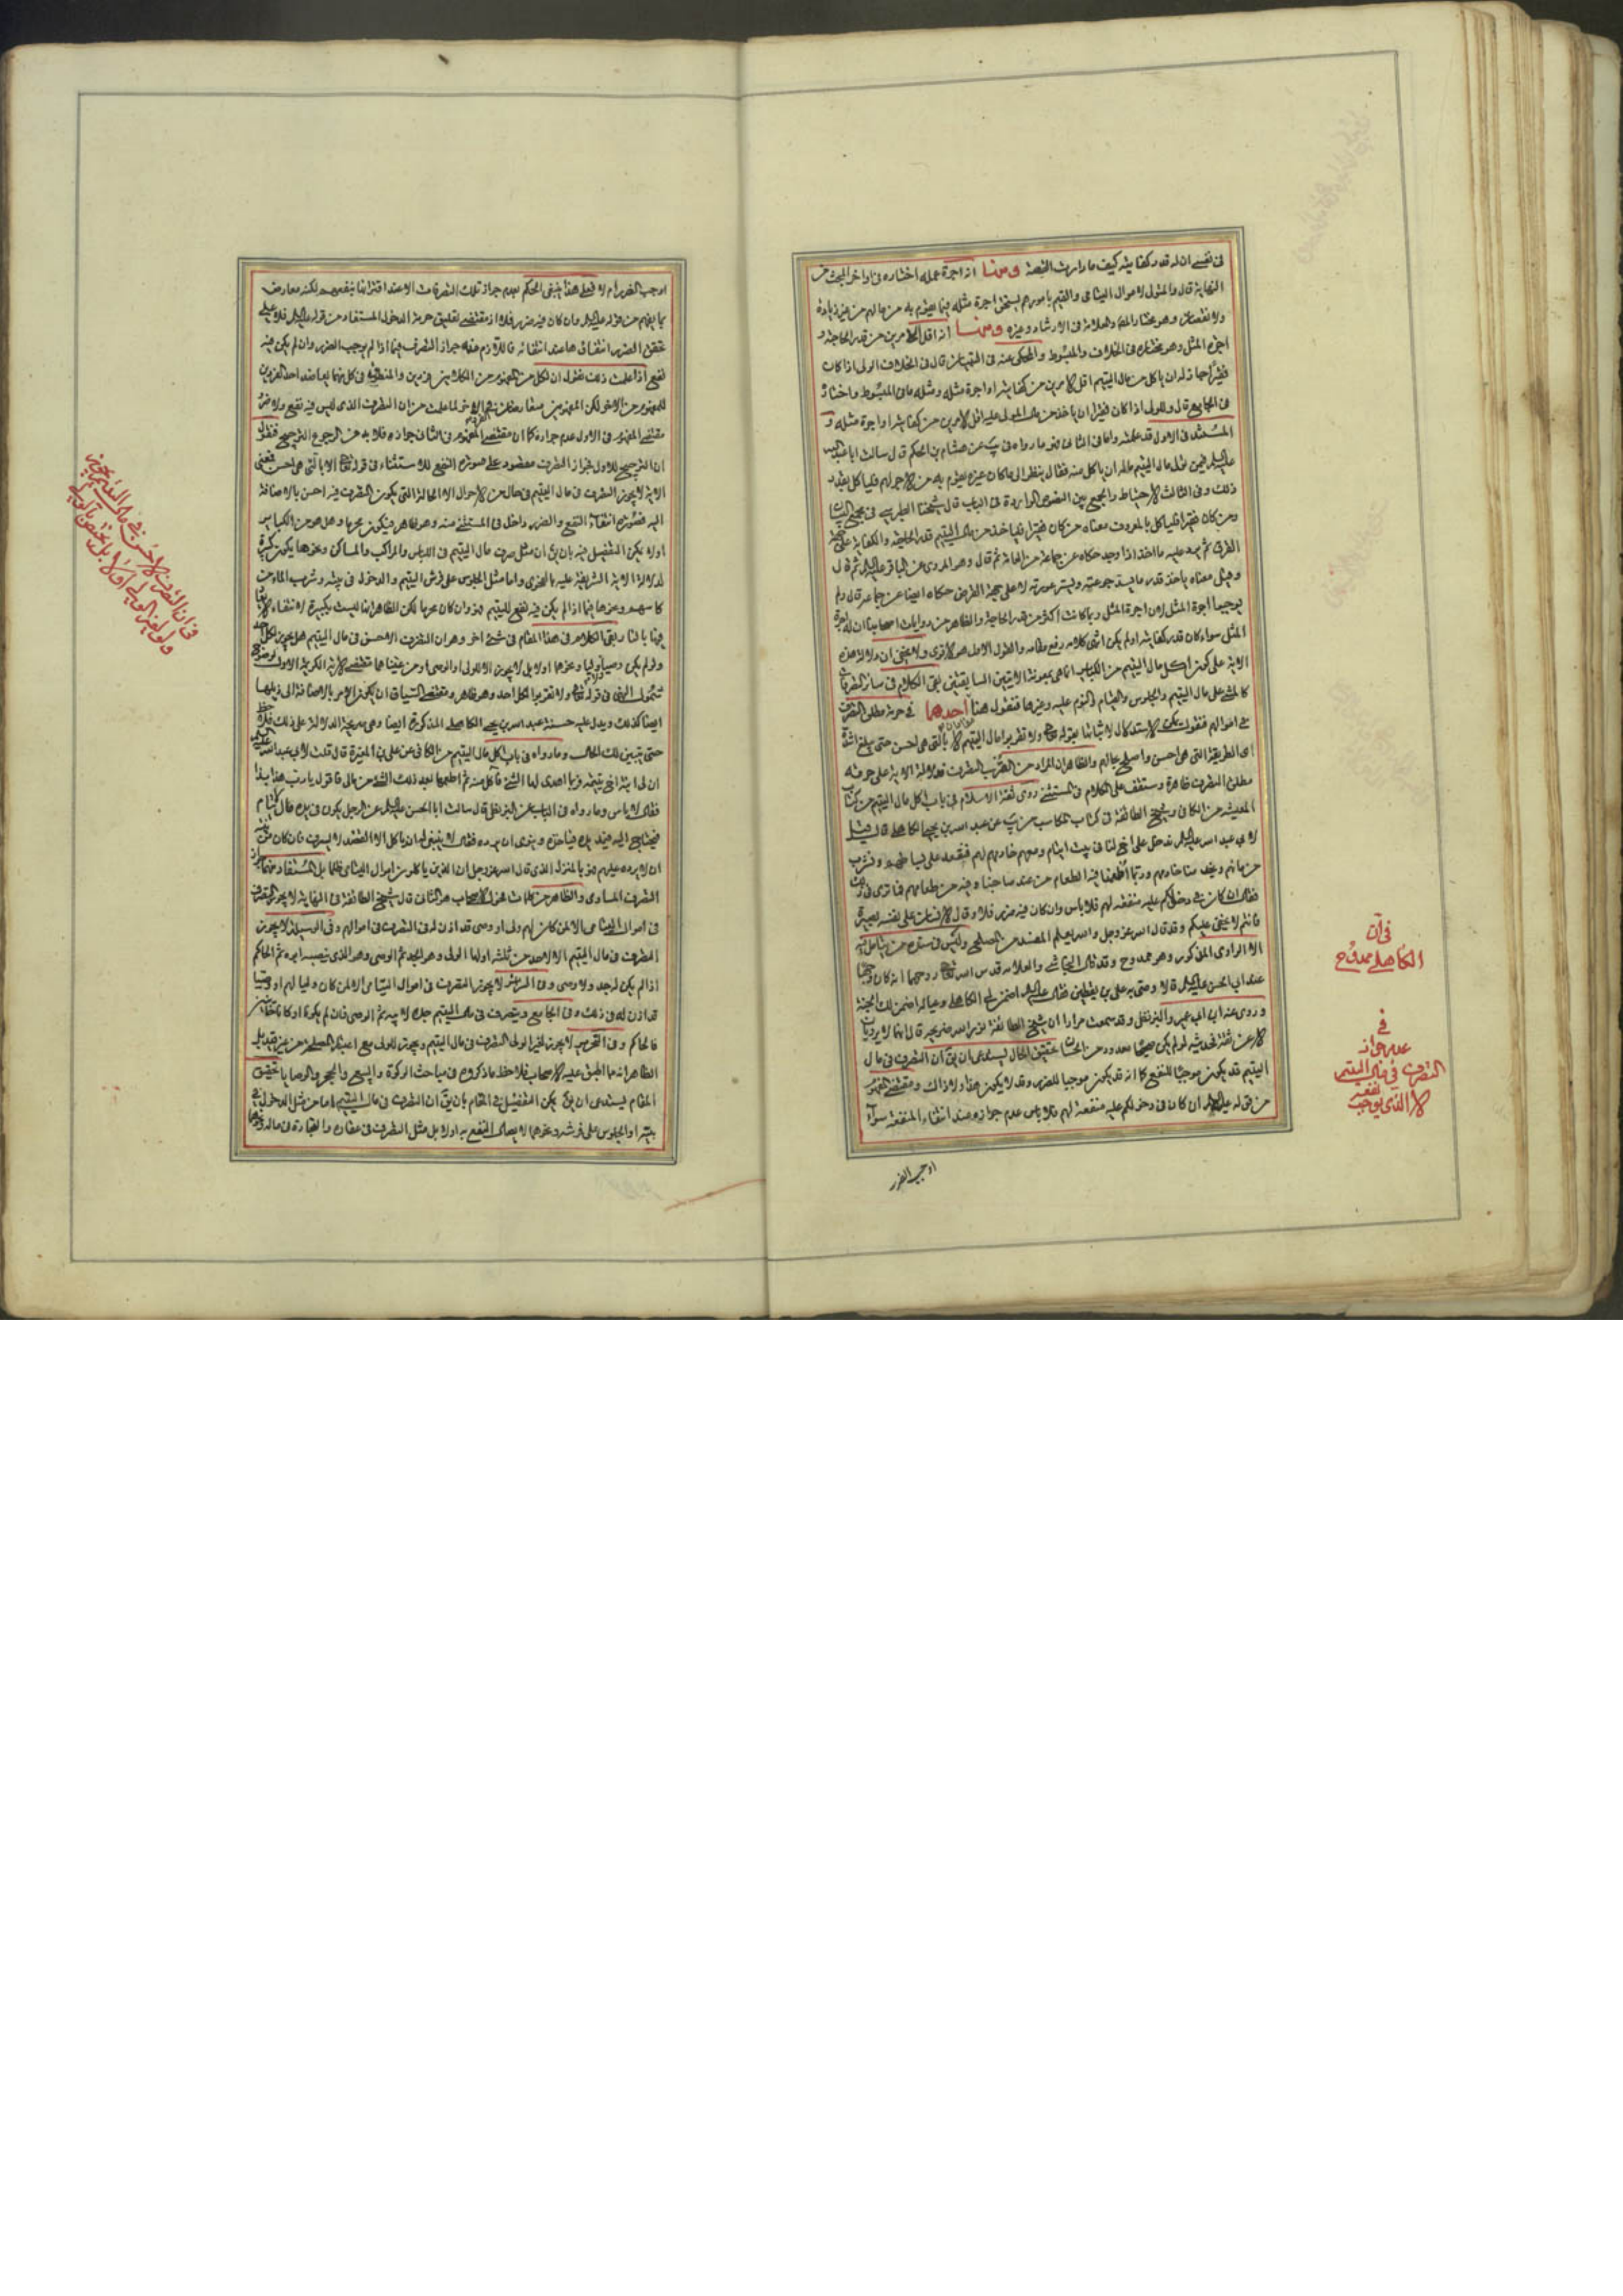 في نفسه ان له قدر كفايته كيف ما دارت القصة ومنها انه اجرة عمله اختاره في اواخر البحث من
النهاية قال والمتولى لاموال اليتامى والقيم بامورهم يستحق اجرة مثله فيما يقوم به من مالهم من غير زيادة
ولا نقصان وهو مختار المحقق والعلامة في الارشاد وغيره ومنها انه اقل الامرين من قدر الحاجة و
اجرة المثل وهو مختاره في الخلاف والمبسوط والمحكى عنه في التبيان قال في الخلاف الولى اذا كان
فقيرا جاز له ان ياكل من مال اليتيم اقل الامرين من كفايته او اجرة مثله ومثله ما في المبسوط واختاره
في الجامع قال وللولى اذا كان فقيرا ان ياخذ من مال المولى عليه اقل الامرين من كفايته او اجرة مثله و
المستند في الاول قد علمته واما في الثانى فهو ما رواه في يب عن هشام بن الحكم قال سالت ابا عبد الله
عليه السلم فيمن تولى مال اليتيم ماله ان ياكل منه فقال ينظر الى ما كان غيره يقوم به من الاجر لهم فلياكل بقدر
ذلك وفي الثالث الاحتياط والجمع بين النصوص الواردة في الباب قال شيخنا الطبرسي في مجمع البيان
ومن كان فقيرا فلياكل بالمعروف معناه من كان فقيرا فلياخذ من مال اليتيم قدر الحاجة والكفاية على جهة
القرض ثم يرد عليه ما اخذ اذا وجد حكاه عن جماعة من العامة ثم قال وهو المروى عن الباقر عليه السلم ثم قال
وقيل معناه ياخذ قدر ما يسد جوعته ويستر عورته لا على جهة القرض حكاه ايضا عن جماعة قال ولم
يوجبوا اجرة المثل لان اجرة المثل ربما كانت اكثر من قدر الحاجة والظاهر من روايات اصحابنا ان له اجرة
المثل سواء كان قدر كفايته او لم يكن انتهى كلامه رفع مقامه والقول الاول هو الاقوى ولا يخفى ان دلالة هذه
الاية على كون اكل مال اليتيم من الكبائر انما هى بمعونة الايتين السابقتين بقى الكلام في سائر التصرفات
كالمشى على مال اليتيم والجلوس والقيام والنوم عليه وغيرها فنقول هنا مقامان احدهما في حرمة مطلق التصرف
في اموالهم فنقول يمكن الاستدلال لاثباتها بقوله تعالى ولا تقربوا مال اليتيم الا بالتى هى احسن حتى يبلغ اشده
اى الطريقة التى هى احسن واصلح بحالهم والظاهر ان المراد من القرب التصرف فدلالة الاية على حرمة
مطلق التصرف ظاهرة وستقف على الكلام في المستثنى روى ثقة الاسلام في باب اكل مال اليتيم من كتاب
المعيشة من الكافي وشيخ الطائفة في كتاب المكاسب من يب عن عبد الله بن يحيى الكاهلى قال قيل
لابى عبد الله عليه السلم ندخل على اخ لنا في بيت ايتام ومعهم خادم لهم فنقعد على بساطهم ونشرب
من مائهم ويخدمنا خادمهم وربما اطعمنا فيه الطعام من عند صاحبنا وفيه من طعامهم فما ترى في ذلك
فقال ان كان في دخولكم عليه منفعة لهم فلا باس وان كان فيه ضرر فلا وقال الانسان على نفسه بصيرة
فانتم لا يخفى عليكم وقد قال الله عز وجل والله يعلم المفسد من المصلح وليس في سنده من يتامل فيه
الا الراوى المذكور وهو ممدوح وقد قال النجاشى والعلامة قدس الله تعالى روحهما انه كان وجيها
عند ابى الحسن عليه السلم قالا ووصى به على بن يقطين فقال عليه السلم اضمن لى الكاهلى وعياله اضمن لك الجنة
وروى عنه ابن ابى عمير والبزنطى وقد سمعت مرارا ان شيخ الطائفة نور الله ضريحه قال انهما لا يرويان
الا عن ثقة فحديثه لو لم يكن صحيحا معدود من الحسان تحقيق الحال يستدعى ان يق ان التصرف في مال
اليتيم قد يكون موجبا للنفع كما انه قد يكون موجبا للضرر وقد لا يكون هذا ولا ذاك ومقتضى المفهوم
من قوله عليه السلم ان كان في دخولكم عليه منفعة لهم فلا باس عدم جوازه عند انتفاء المنفعة سواء
اوجب الضرر
في ان
الكاهلي ممدوح
في
عدم جواز
التصرف في مال اليتيم
الا الذي يوجب نفعه
اوجب الضرر ام لا فعلى هذا ينبغى الحكم بعدم جواز تلك التصرفات الا عند اقترانها بنفعهم لكنه معارض
بما يفهم من قوله عليه السلم وان كان فيه ضرر فلا اذ مقتضى تعليق حرمة الدخول المستفاد من قوله عليه السلم فلا على
تحقق الضرر انتفاؤها عند انتفائه فاللازم منه جواز التصرف فيما اذا لم يوجب الضرر وان لم يكن فيه
نفع اذا علمت ذلك نقول ان لكل من المفهومين
للمفهوم من الاخر لكن المفهومين متعارضان في التصرف الذى ليس فيه نفع ولا ضرر
مقتضى المفهوم في الاول عدم جوازه كما ان مقتضى المفهوم في الثانى جوازه فلا بد من الرجوع الى الترجيح فنقول
ان الترجيح للاول فجواز التصرف مقصور على صورة النفع للاستثناء في قوله تعالى الا بالتى هى احسن فمعنى
الاية لا يجوز التصرف في مال اليتيم في حال من الاحوال الا الحالة التى يكون التصرف فيه احسن بالاضافة
اليه فصورة انتفاء النفع والضرر داخل في المستثنى منه وهو ظاهر فيكون محرما وهل هو من الكبائر
او لا يمكن التفصيل فيه بان يق ان مثل صرف مال اليتيم في اللباس والمراكب والمساكن ونحوها يكون كبيرة
لدلالة الاية الشريفة عليه بالفحوى واما مثل الجلوس على فرش اليتيم والدخول في بيته وشرب الماء من
كاسهم ونحوها فيما اذا لم يكن فيه نفع لليتيم فهو وان كان محرما لكن الظاهر انها ليست بكبيرة لانتفاء
فيها بالنار بقى الكلام في هذا المقام في شىء اخر وهو ان التصرف الاحسن في مال اليتيم هل يجوز لكل احد
ولو لم يكن وصيا او وليا ونحوهما او لا بل لا يجوز الا للولى او الوصى
شمول النهى في قوله تعالى ولا تقربوا لكل احد وهو ظاهر ومقتضى السياق ان يكون الامر بالاضافة الى ذيلها
ايضا كذلك ويدل عليه حسنة عبد الله بن يحيى الكاهلى المذكورة ايضا وهى صريحة الدلالة على ذلك فلاحظ
حتى يتبين لك الحال وما رواه في باب اكل مال اليتيم من الكافي عن على بن المغيرة قال قلت لابى عبد الله عليه السلم
ان لى ابنة اخ يتيمة فربما اهدى لها الشىء فاكل منه ثم اطعمها بعد ذلك الشىء من مالى فاقول يا رب هذا بذا
فقال لا باس وما رواه في الباب عن البزنطى قال سالت ابا الحسن عليه السلم عن الرجل يكون في يده مال لايتام
فيحتاج اليه فيمد يده فياخذه وينوى ان يرده فقال لا ينبغى له ان ياكل الا القصد لا يسرف فان كان من نيته
ان لا يرده عليهم فهو بالمنزل الذى قال الله عز وجل ان الذين ياكلون اموال اليتامى ظلما بل المستفاد منهما جواز
التصرف المساوى والظاهر من كلمات فحول الاصحاب هو الثانى قال شيخ الطائفة في النهاية لا يجوز التصرف
في اموال اليتامى الا لمن كان لهم ولى او وصى قد اذن له في التصرف في اموالهم وفي الوسيلة لا يجوز
التصرف في مال اليتيم الا لاحد من ثلثة اولها الولى وهو الجد ثم الوصى وهو الذى ينصبه ابوه ثم الحاكم
اذا لم يكن له جد ولا وصى وفي السرائر لا يجوز التصرف في اموال اليتامى الا لمن كان وليا لهم او وصيا
قد اذن له في ذلك وفي الجامع ويتصرف في مال اليتيم جده لابيه ثم الوصى فان لم يكونا او كانا
فالحاكم وفي التحرير لا يجوز لغير الولى التصرف في مال اليتيم ويجوز للولى مع اعتبار المصلحة من غير تقييد بل
الظاهر انه مما اطبق عليه الاصحاب فلاحظ ما ذكروه في مباحث الزكوة والبيع والحجر والوصايا تحقيق
المقام يستدعى ان يق يمكن التفصيل في المقام بان يق ان التصرف في مال اليتيم اما من مثل الدخول في
بيته او الجلوس على فرشه ونحوهما لا يصال النفع به او لا بل مثل التصرف في عقاره والتجارة في ماله ونحوها
في ان التصرف الاحسن في مال اليتيم هل يجوز
ولو لغير الولي او لا بل يختص بالولي